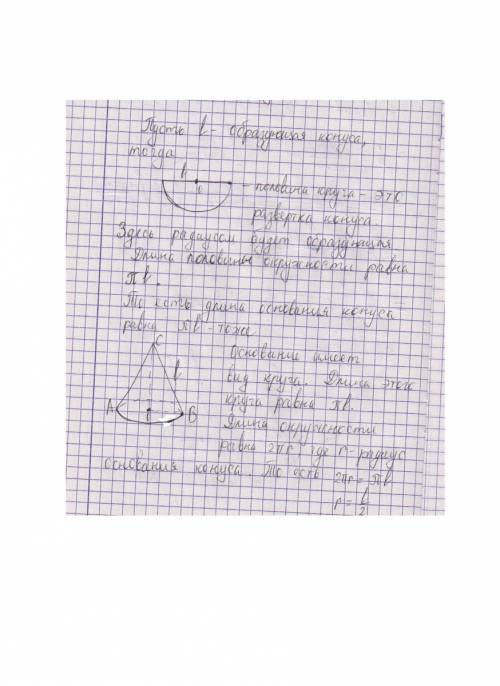 Пусть l - образующая конуса,
тогда
l
o
- половина круга - это
развертка конуса
Здесь радиусом будет образующая.
Длина половины окружности равна
πl.
То есть длина основания конуса
равна πl - тоже
C
l
A
B
Основание имеет
вид круга. Длина этого
круга равна πl.
Длина окружности
равна 2πr, где r - радиус
основания конуса. То есть 2πr = πl
r = l/2